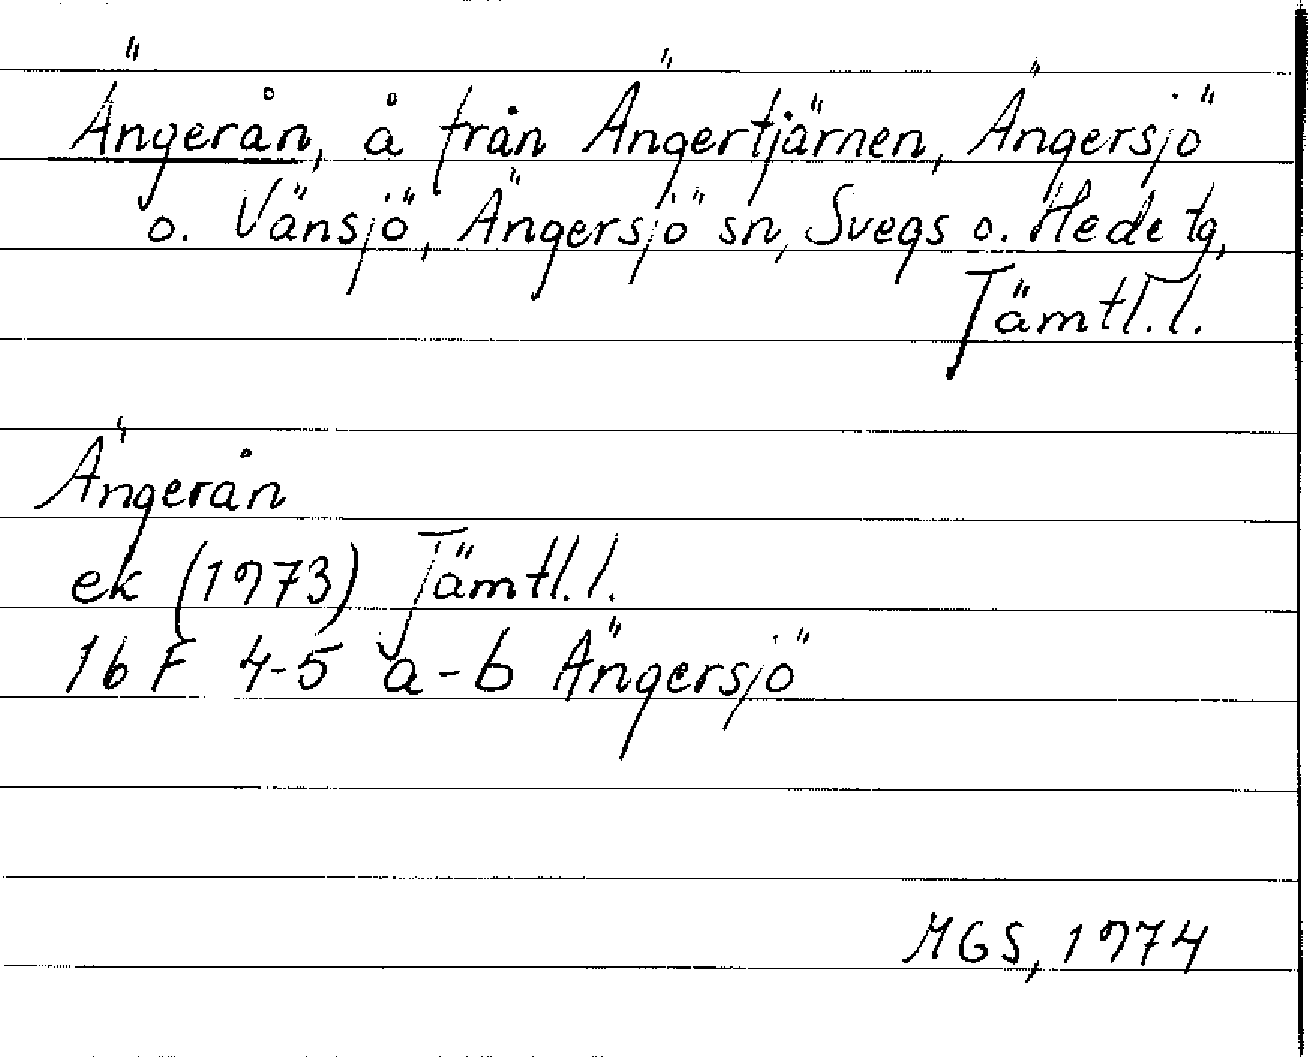 Ängerån, å från Ängertjärnen, Ängersjö
o. Vänsjö, Ängersjö sn, Svegs o. Hede tg,
Jämtl. l.
Ängerån
ek (1973) Jämtl. l.
16 F 4-5 a-b Ängersjö
MGS, 1974